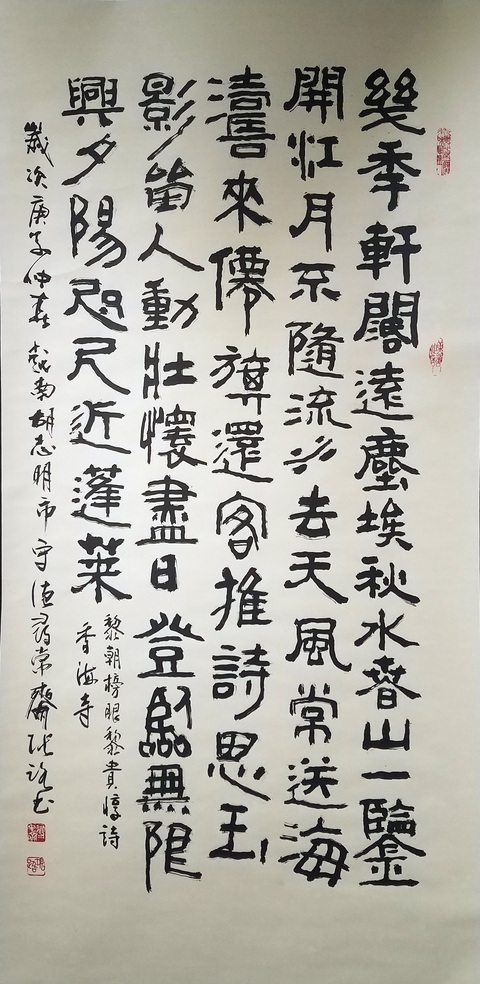 幾秊軒闥遠塵埃秋水春山一鑒
開江月不隨流水去天風常送海
濤來僊旗還客推詩思玉
影留人動壯懷盡日登臨無限
興夕陽咫尺近蓬萊
黎朝榜眼黎貴惇詩
香海寺
歲次庚子仲春越南胡志明市守德尋常齋張路書